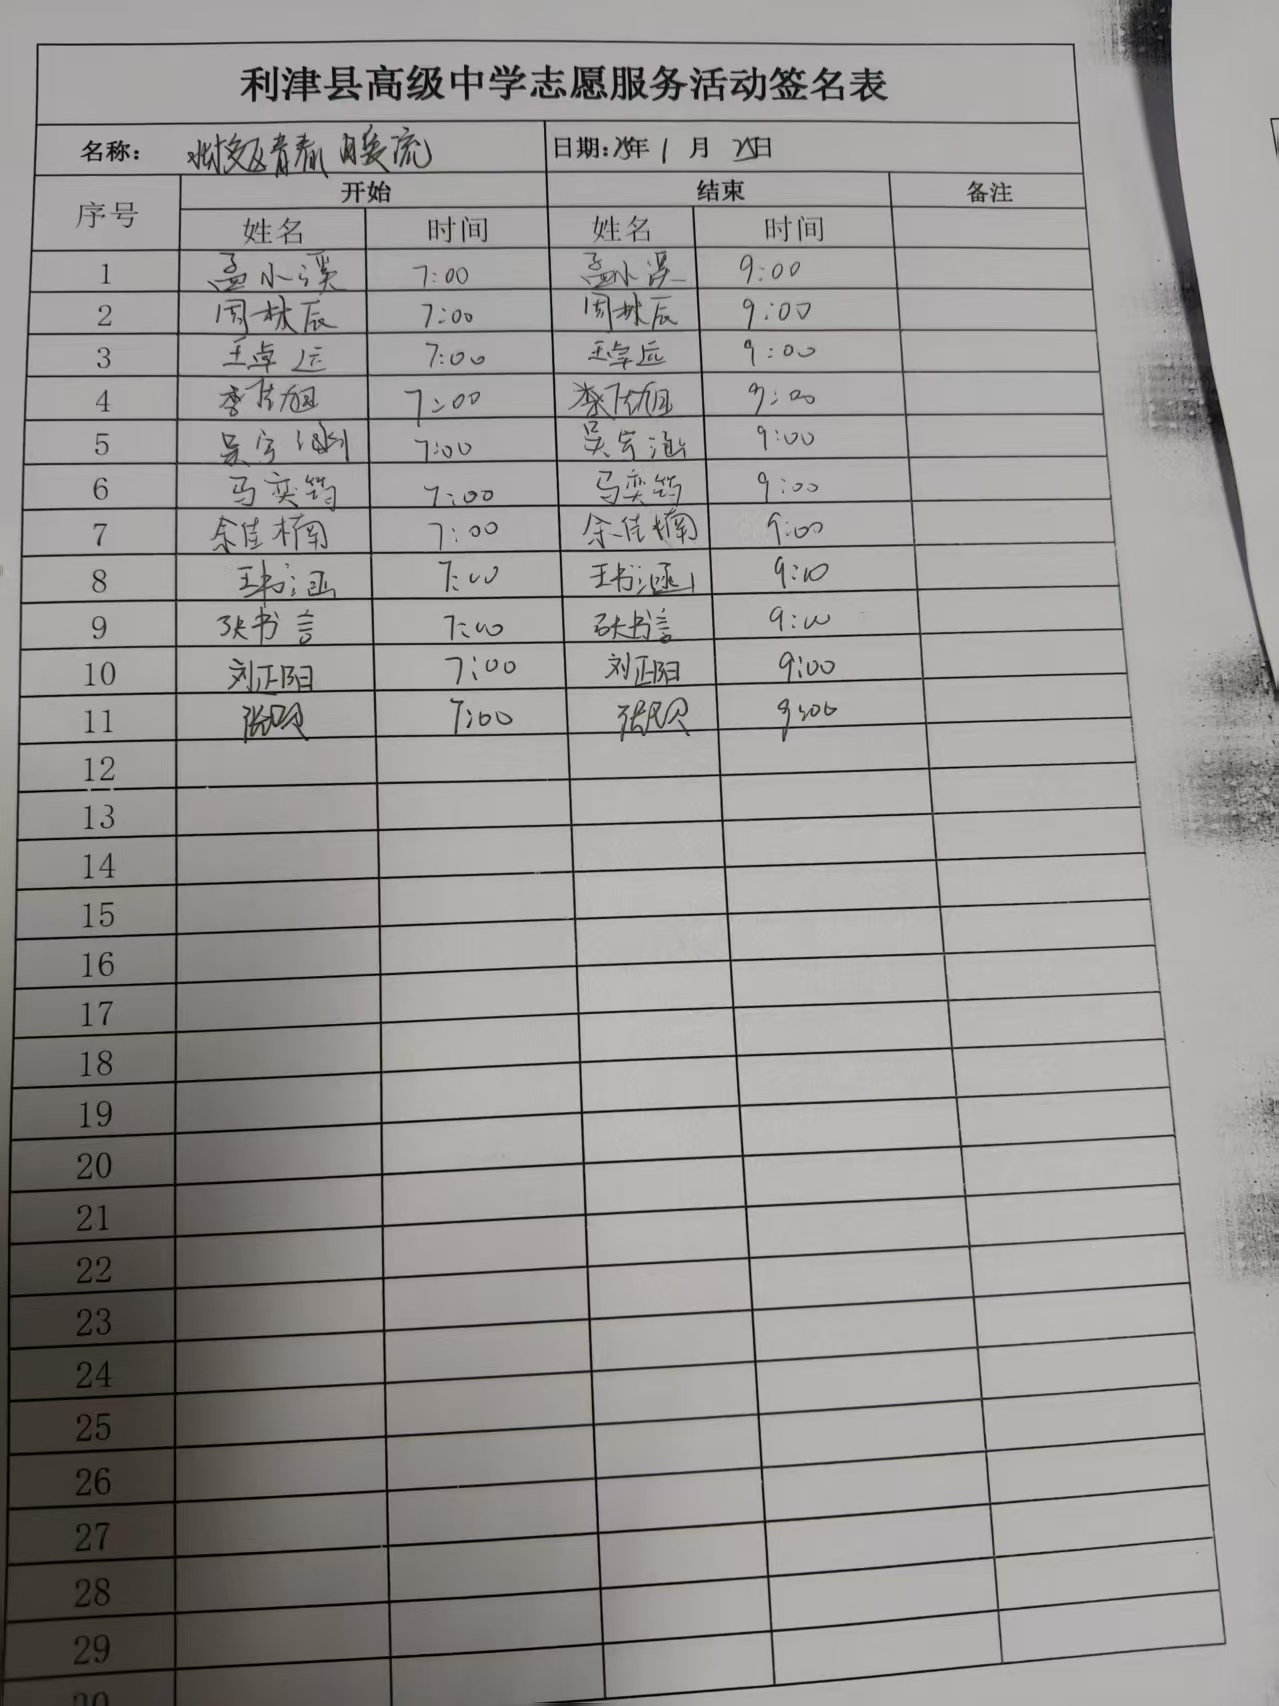 利津县高级中学志愿服务活动签名表
名称： 青春 暖流 日期：25年 1 月 25日
序号 开始 结束 备注
姓名 时间 姓名 时间
1 孟小溪 7:00 孟小溪 9:00
2 周林辰 7:00 周林辰 9:00
3 王卓远 7:00 王卓远 9:00
4 李佳旭 7:00 李佳旭 9:00
5 吴宇涵 7:00 吴宇涵 9:00
6 马奕筠 7:00 马奕筠 9:00
7 余佳楠 7:00 余佳楠 9:00
8 王书涵 7:00 王书涵 9:10
9 张书言 7:00 张书言 9:00
10 刘正阳 7:00 刘正阳 9:00
11 7:00 9:00
12
13
14
15
16
17
18
19
20
21
22
23
24
25
26
27
28
29
30